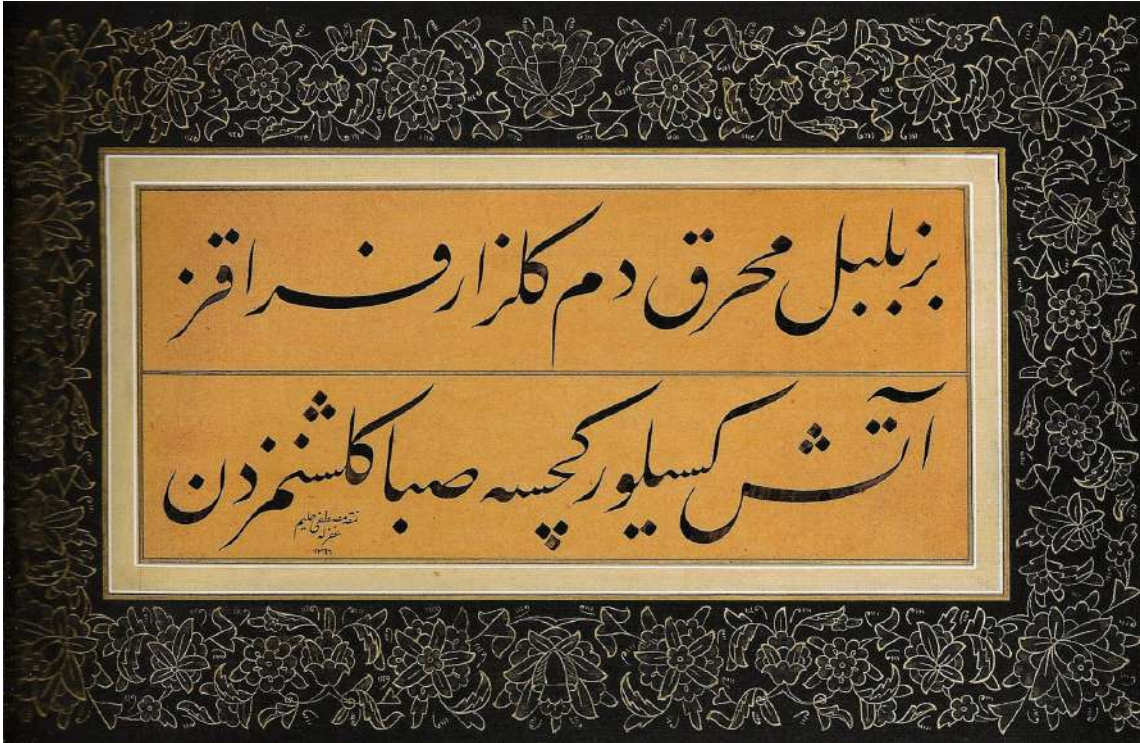 بز بلبل محرق دم كلزار فراقز
آتش كسيلور كچسه صبا كلشنمزدن
نمقه مصطفى حليم
غفرله